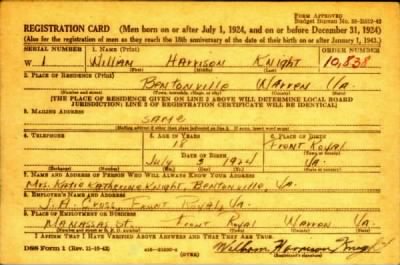 FORM APPROVED
Budget Bureau No. 33-R012-42
REGISTRATION CARD (Men born on or after July 1, 1924, and on or before December 31, 1924)
(Also for the registration of men as they reach the 18th anniversary of the date of their birth on or after January 1, 1943.)
SERIAL NUMBER 1. NAME (Print) ORDER NUMBER
W 1 William Harrison Knight 10,838
2. PLACE OF RESIDENCE (Print)
Bentonville Warren Va.
[THE PLACE OF RESIDENCE GIVEN ON LINE 2 ABOVE WILL DETERMINE LOCAL BOARD
JURISDICTION; LINE 2 OF REGISTRATION CERTIFICATE WILL BE IDENTICAL]
3. MAILING ADDRESS
Same
[Mailing address if other than place indicated on line 2. If same, insert word same]
4. TELEPHONE 5. AGE IN YEARS 6. PLACE OF BIRTH
18 Front Royal
DATE OF BIRTH
July 3 1924 Va.
7. NAME AND ADDRESS OF PERSON WHO WILL ALWAYS KNOW YOUR ADDRESS
Mrs. Katie Katherine Knight, Bentonville, Va.
8. EMPLOYER'S NAME AND ADDRESS
Front Royal, Va.
9. PLACE OF EMPLOYMENT OR BUSINESS
Manassas St. Front Royal Warren Va.
I AFFIRM THAT I HAVE VERIFIED ABOVE ANSWERS AND THAT THEY ARE TRUE.
DSS Form 1 (Rev. 11-16-42) (OVER) William Harrison Knight